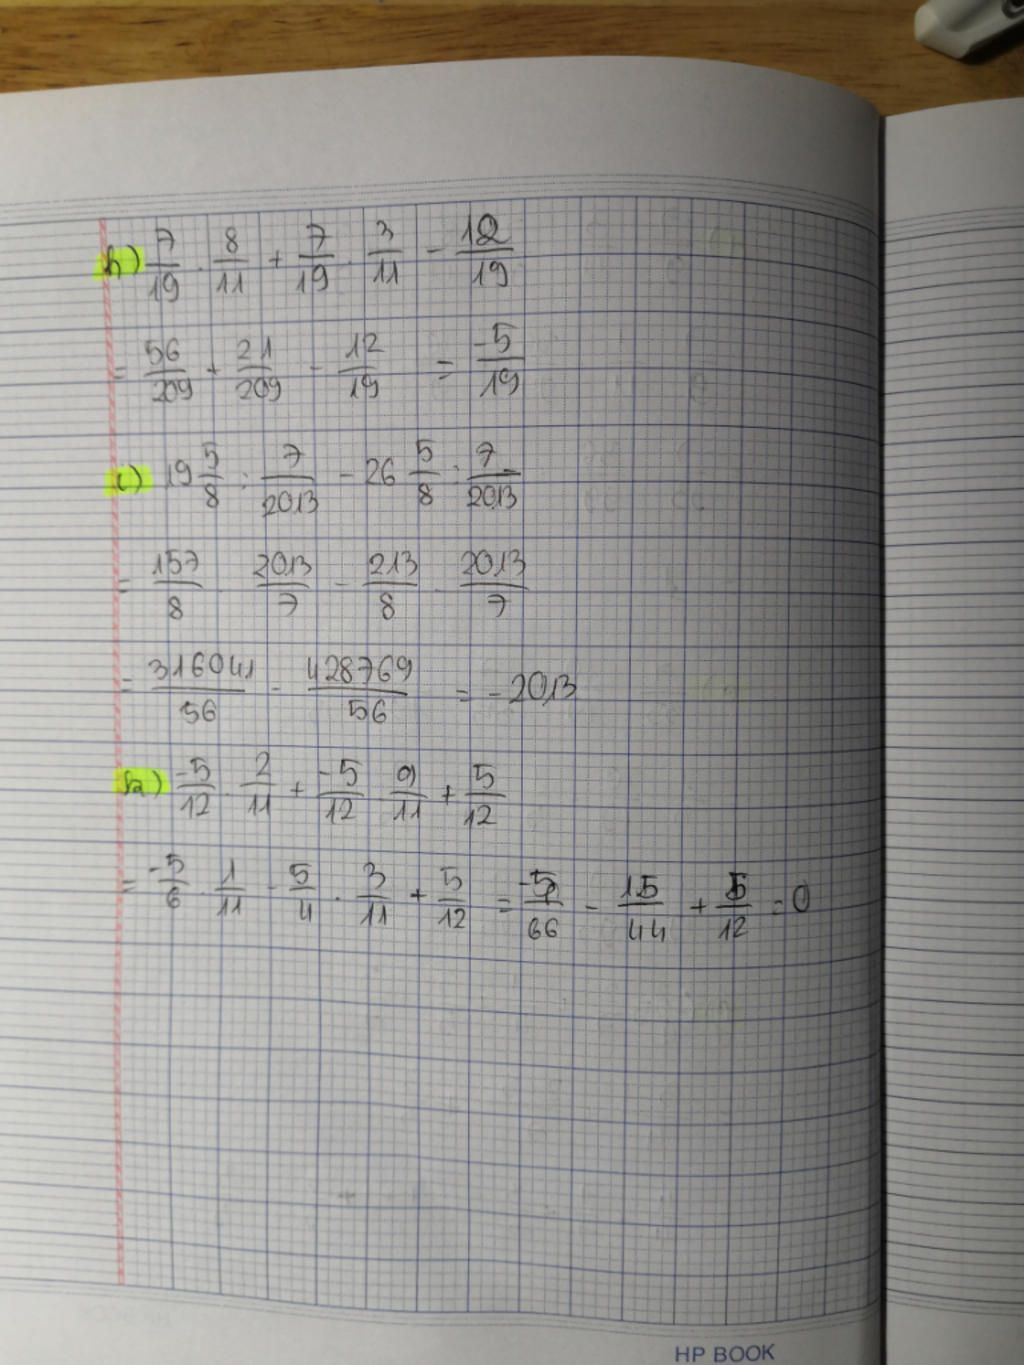 h) 7/19 . 8/11 + 7/19 . 3/11 - 12/19
= 56/209 + 21/209 - 12/19 = -5/19
i) 19 5/8 : 7/2013 - 26 5/8 : 7/2013
= 157/8 . 2013/7 - 213/8 . 2013/7
= 316041/56 - 428769/56 = -2013
-5/12 . 2/11 + -5/12 . 9/11 + 5/12
= -5/6 . 1/11 - 5/4 . 3/11 + 5/12 = -5/66 - 15/44 + 5/12 = 0
HP BOOK